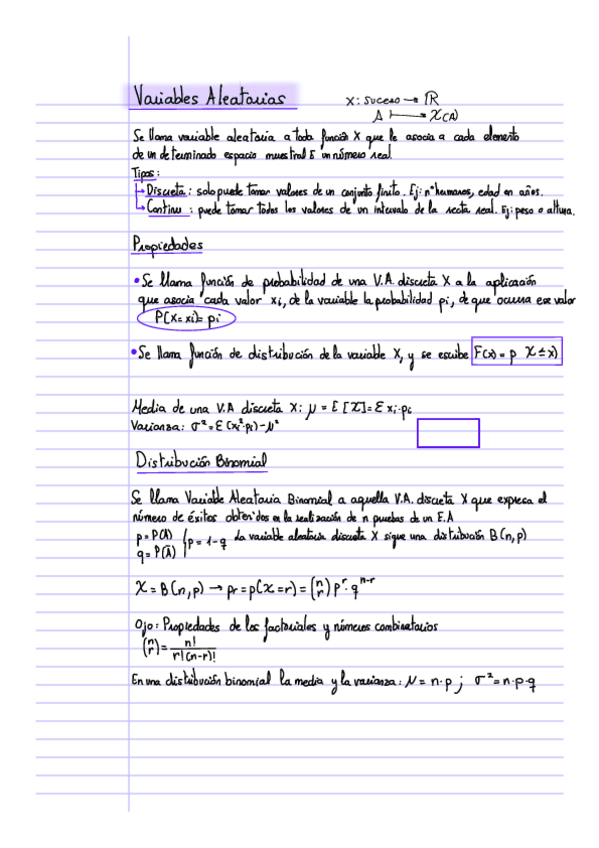 Variables Aleatorias
X: suceso → ℝ
A ↦ X(A)
Se llama variable aleatoria a toda función X que le asocia a cada elemento
de un determinado espacio muestral E un número real
Tipos:
↳ Discreta: solo puede tomar valores de un conjunto finito. Ej: nº humanos, edad en años.
↳ Continu: puede tomar todos los valores de un intervalo de la recta real. Ej: peso o altura.
Propiedades
• Se llama función de probabilidad de una V.A. discreta X a la aplicación
que asocia cada valor xi, de la variable la probabilidad pi, de que ocurra ese valor
P(X=xi)=pi
• Se llama función de distribución de la variable X, y se escribe F(x) = p X ≤ x)
Media de una V.A discreta X: μ = E [X] = Σ xi·pi
Varianza: σ² = Σ (xi²·pi) - μ²
Distribución Binomial
Se llama Variable Aleatoria Binomial a aquella V.A. discreta X que expresa el
número de éxitos obtenidos en la realización de n pruebas de un E.A
p = P(A) / p = 1-q La variable aleatoria discreta X sigue una distribución B(n,p)
q = P(Ā)
X = B(n,p) → pr = p(X=r) = (n r) p^r · q^n-r
Ojo: Propiedades de los factoriales y números combinatorios
(n r) = n! / r!(n-r)!
En una distribución binomial la media y la varianza: μ = n·p ; σ² = n·p·q